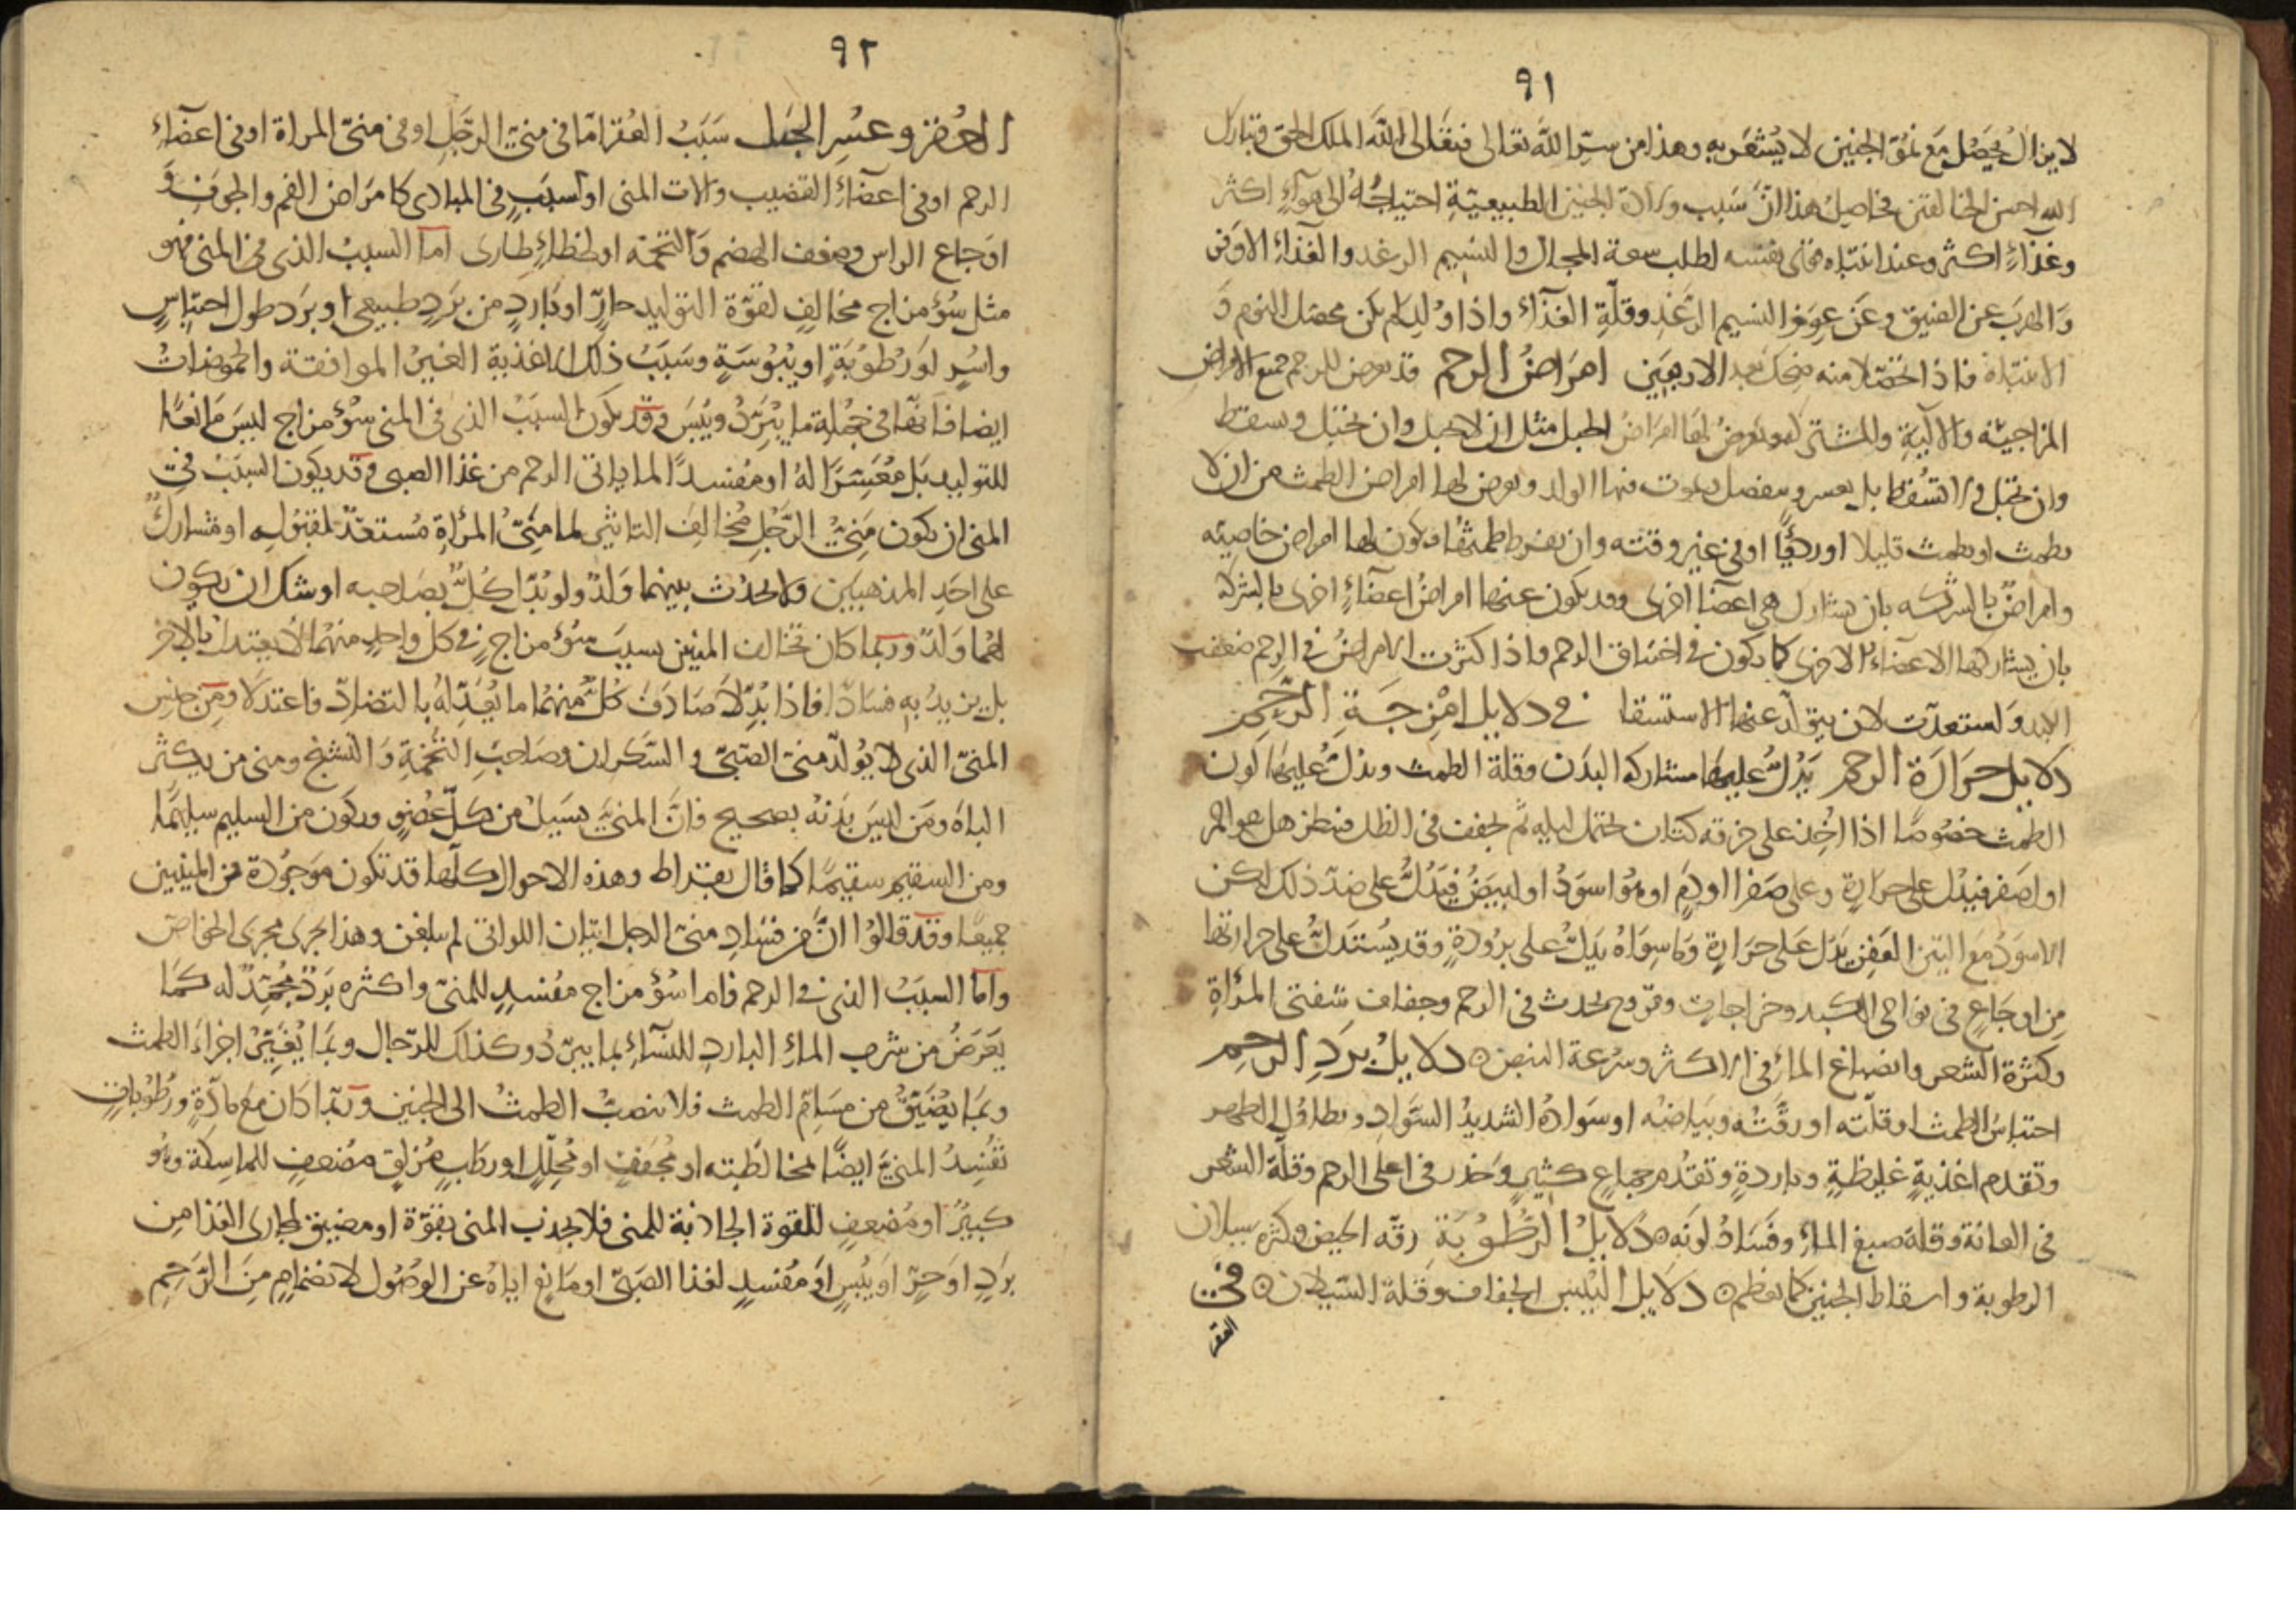 ٩١
لا يزال يتصل مع نمو الجنين لا يشعر به وهذا من سر الله تعالى فتعالى الله الملك الحق وتبارك
الله احسن الخالقين فحاصل هذا ان سبب ولاد الجنين الطبيعية احتياجه الى هواء اكثر
وغذاء اكثر وعند انتباه نفسه لطلب سعة المجال والنسيم الرغد والغذاء الاوفر
والهرب عن الضيق وعن عوز النسيم الرغد وقلة الغذاء واذا ولد لم يكن محصل النوم و
الانتباه فاذا منه ضحك بعد الاربعين امراض الرحم قد يعرض للرحم جميع الامراض
المزاجية والآلية والمشتركة ويعرض لها امراض الحبل مثل ان لا تحبل وان تحبل ويسقط
وان تحبل ولا تسقط بل يعسر ويعضل ويموت فيها الولد ويعرض لها امراض الطمث من ان لا
تطمث او تطمث قليلا او رديا او في غير وقته وان يفرط طمثها ويكون لها امراض خاصيه
وامراض بالشركه بان يشارك هي اعضا اخرى وقد يكون عنها امراض اعضاء اخرى بالشركه
بان يشاركها الاعضاء الاخرى كما يكون في اختناق الرحم واذا كثرت الامراض في الرحم ضعفت
الكبد واستعدت لان يتولد عنها الاستسقا في دلايل امزجة الرحم
دلايل حرارة الرحم يدل عليها مشاركه البدن وقلة الطمث ويدل عليها لون
الطمث خصوصا اذا اخذ على خرقه كتان تحتمل ليله ثم تجفف في الظل فينظر هل هو احمر
او اصفر فيدل على حرارة وعلى صفرا او دم او هو اسود او ابيض فيدل على ضد ذلك لكن
الاسود مع النتن العفن يدل على حرارة وما سواه يدل على برودة وقد يستدل على حرارتها
من اوجاع في نواحى الكبد وخراجات وقروح تحدث في الرحم وجفاف شفتى المراة
وكثرة الشعر وانصباغ الماء في الاكثر وسرعة النبض ٥ دلايل برد الرحم
احتباس الطمث او قلته او رقته وبياضه او سواده الشديد السواد وتطاول الطهر
وتقدم اغذية غليظة وباردة وتقدم جماع كثير وخدر في اعلى الرحم وقلة الشعر
في العانة وقلة صبغ الماء وفساد لونه ٥ دلايل الرطوبة رقه الحيض وكثره سيلان
الرطوبة واسقاط الجنين كما يعظم ٥ دلايل اليبس الجفاف وقلة السيلان ٥ في
العقر
٩٢
العقر وعسر الحبل سبب العقر اما في منى الرجل او في منى المراة او في اعضاء
الرحم او في اعضاء القضيب وآلات المنى او لسبب في المبادى كامراض الغم والخوف و
اوجاع الراس وضعف الهضم والتخمة او لخلط طارى اما السبب الذى في المنى فهو
مثل سؤ مزاج مخالف لقوة التوليد حار او بارد من برد طبيعى او برد طول احتباس
واسر او رطوبة او يبوسة وسبب ذلك الاغذية الغير الموافقة والحموضات
ايضا فانها في جملة ما يبرد ويبس وقد يكون السبب الذى في المنى سؤ مزاج ليس مانعا
للتوليد بل معسرا له او مفسدا لما ياتى الرحم من غذا الصبى وقد يكون السبب في
المنى ان يكون منى الرجل مخالف التاثير لما منى المراة مستعد لقبوله او مشارك
على احد المذهبين ولا يحدث بينهما ولد ولو بدل كل بصاحبه اوشك ان يكون
لهما ولد وربما كان تخالف المنيين بسبب سؤ مزاج في كل واحد منهما لا يعتدل بالاخر
بل يزيد به فسادا فاذا بدلا صادف كل منهما ما يعدله بالتضاد فاعتدلا ومن جنس
المنى الذى لا يولد منى الصبى والسكران وصاحب التخمة والشيخ ومنى من يكثر
الباه ومن ليس بدنه بصحيح فان المنى يسيل من كل عضو ويكون من السليم سليما
ومن السقيم سقيما كما قال بقراط وهذه الاحوال كلها قد تكون موجودة من المنيين
جميعا وقد قالوا ان من فساد منى الرجل اتيان اللواتى لم يبلغن وهذا يجرى مجرى الخاص
واما السبب الذى في الرحم فاما سؤ مزاج مفسد للمنى واكثره برد مجمد له كما
يعرض من شرب الماء البارد للنساء بما يبرد وكذلك للرجال وبما يغير اجزاء الطمث
وبما يضيق من مسام الطمث فلا ينصب الطمث الى الجنين وربما كان مع مادة ورطوبات
تفسد المنى ايضا لمخالطته او مجفف او محلل او رطب مزلق مضعف للماسكة وهو
كبير او مضعف للقوة الجاذبة للمنى فلا يجذب المنى بقوة او مضيق لمجارى الغذا من
برد او حر او يبس او مفسد لغذا الصبى او مانع اياه عن الوصول لانضمام من الرحم